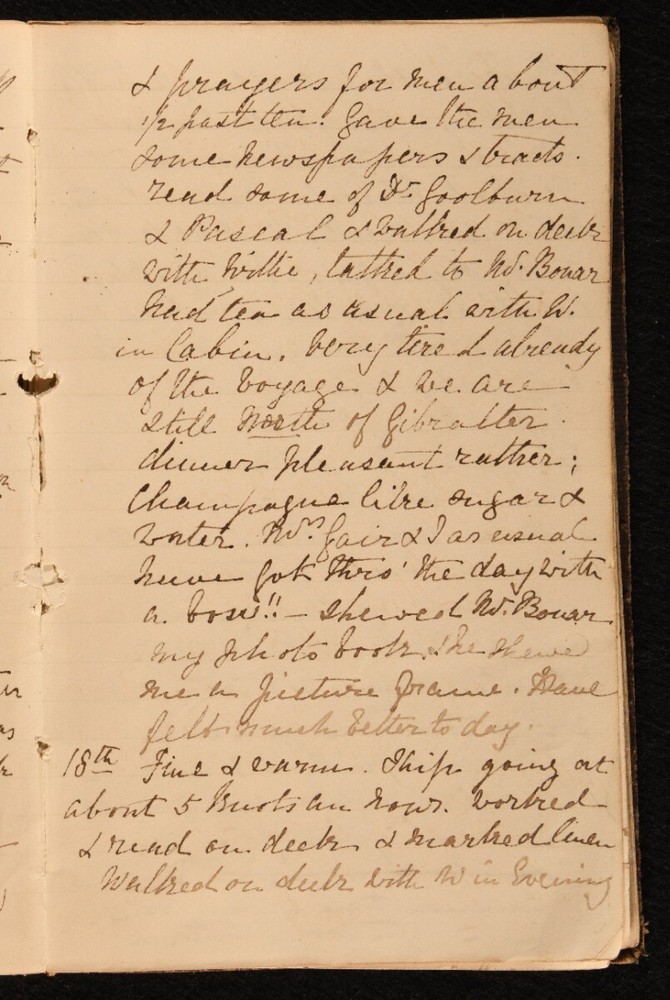 & prayers for men about
1/2 past ten. Gave the men
some newspapers & tracts.
read some of Dr Goolburn
& Pascal & walked on deck
with Willie, talked to Mr. Bonar
had tea as usual with W.
in Cabin. Very tired already
of the voyage & we are
still North of Gibralter.
dinner pleasant rather;
Champagne like sugar &
water. Mrs. Fair & I as usual
have got thro' the day with
a bow!! - shewed Mr. Bonar
my photo book, & he shewed
me a picture frame. Have
felt much better to day.
18th Fine & warm. Ship going at
about 5 Knots an hour. worked
& read on deck & marked linen
Walked on deck with W in Evening